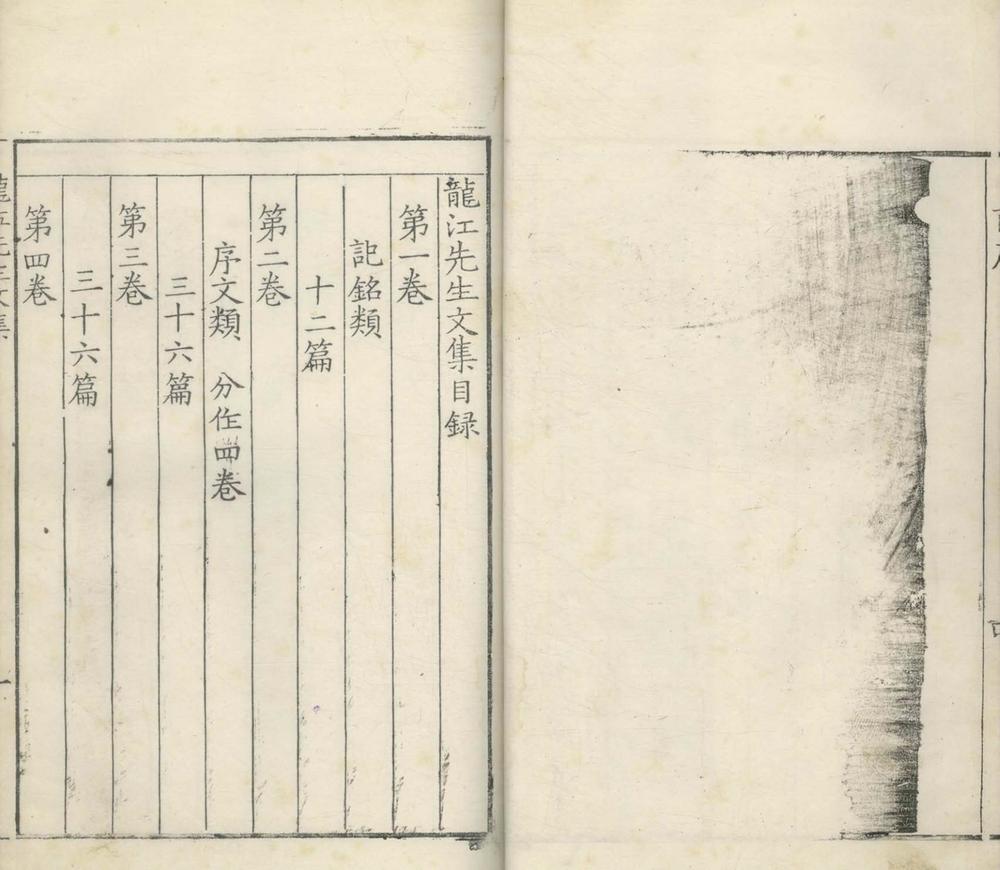 龍江先生文集目録
第一卷
記銘類
十二篇
第二卷
序文類 分作四卷
三十六篇
第三卷
三十六篇
第四卷